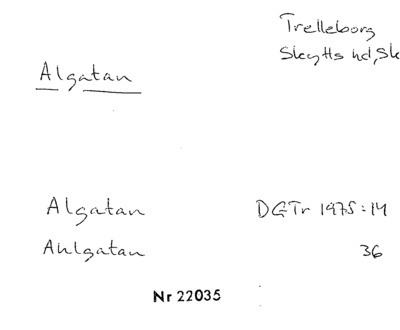 Trelleborg
Skytts hd, Sk
Algatan
Algatan DGTr 1975:14
Ahlgatan 36
Nr 22035